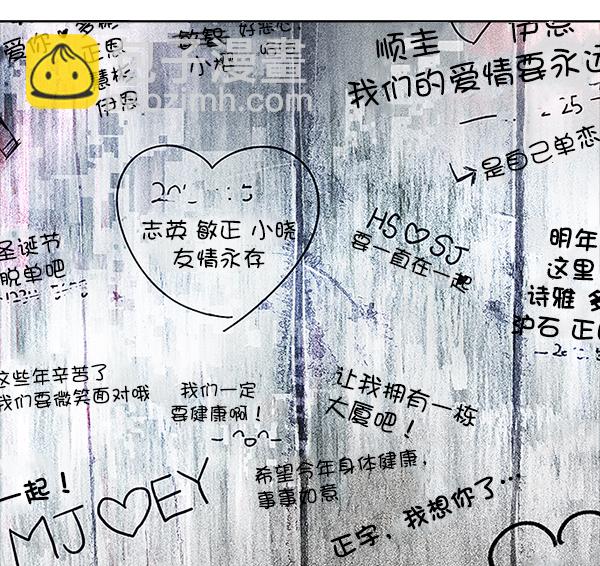 爱你
正恩
慧彬
伊恩
敏智
小彬
包子漫畫
baozimh.com
顺圭
伊恩
我们的爱情要永远
25
是自己单恋
志英 敏正 小晓
友情永存
HS♡SJ
要一直在一起
圣诞节
脱单吧
明年
这里
诗雅 多
沪石 正
这些年辛苦了
我们要微笑面对哦
我们一定
要健康啊！
让我拥有一栋
大厦吧！
希望今年身体健康，
事事如意
一起！
MJ♡EY
正字，我想你了…